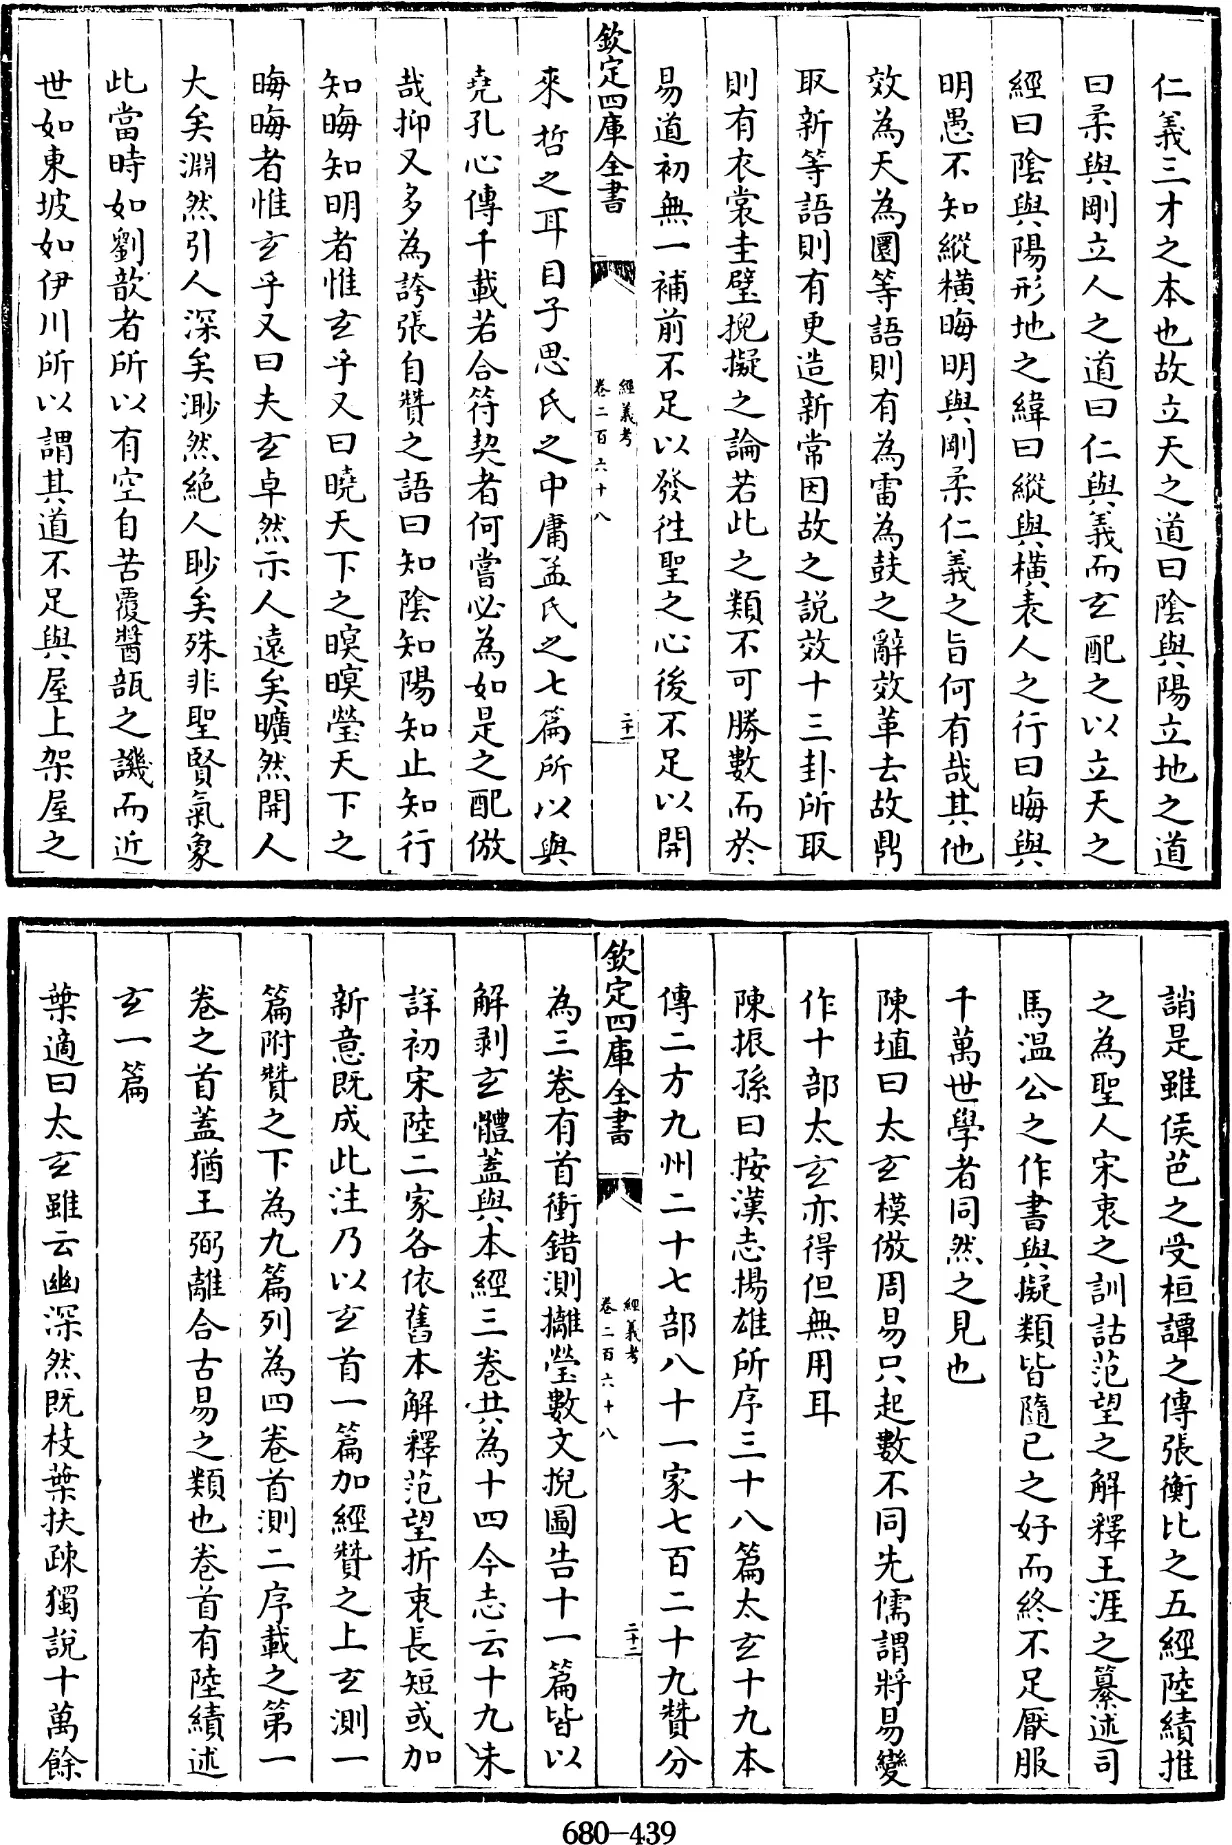 仁義三才之本也故立天之道曰陰與陽立地之道
曰柔與剛立人之道曰仁與義而玄配之以立天之
經曰陰與陽形地之緯曰縱與横表人之行曰晦與
明愚不知縱横晦明與剛柔仁義之旨何有哉其他
效為天為圜等語則有為雷為鼓之辭效革去故鼎
取新等語則有更造新常因故之説效十三卦所取
則有衣裳圭璧掜擬之論若此之類不可勝數而於
易道初無一補前不足以發徃聖之心後不足以開
欽定四庫全書
經義考
卷二百六十八
二十一
來哲之耳目子思氏之中庸孟氏之七篇所以與
堯孔心傳千載若合符契者何嘗必為如是之配倣
哉抑又多為誇張自贊之語曰知陰知陽知止知行
知晦知明者惟玄乎又曰曉天下之瞑瞑瑩天下之
晦晦者惟玄乎又曰夫玄卓然示人逺矣曠然開人
大矣淵然引人深矣渺然絶人眇矣殊非聖賢氣象
此當時如劉歆者所以有空自苦覆醬瓿之譏而近
世如東坡如伊川所以謂其道不足與屋上架屋之
誚是雖侯芭之受桓譚之傳張衡比之五經陸績推
之為聖人宋衷之訓詁范望之解釋王涯之纂述司
馬温公之作書與擬類皆隨已之好而終不足厭服
千萬世學者同然之見也
陳埴曰太玄模倣周易只起數不同先儒謂將易變
作十部太玄亦得但無用耳
陳振孫曰按漢志揚雄所序三十八篇太玄十九本
傳二方九州二十七部八十一家七百二十九贊分
欽定四庫全書
經義考
卷二百六十八
二十二
為三卷有首衝錯測攡瑩數文掜圖告十一篇皆以
解剥玄體蓋與本經三卷共為十四今志云十九未
詳初宋陸二家各依舊本解釋范望折衷長短或加
新意既成此注乃以玄首一篇加經贊之上玄測一
篇附贊之下為九篇列為四卷首測二序載之第一
卷之首蓋猶王弼離合古易之類也卷首有陸績述
玄一篇
葉適曰太玄雖云幽深然既枝葉扶疎獨說十萬餘
680-439